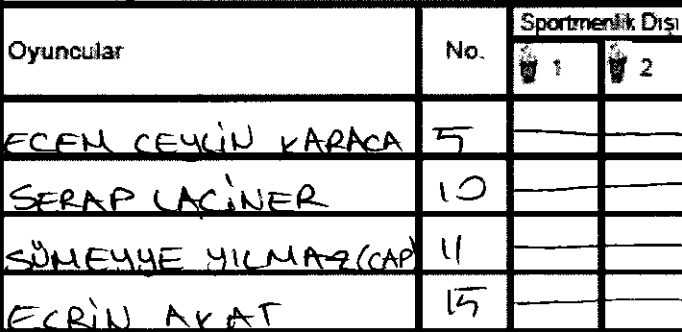 Oyuncular No. Sportmenlik Dışı
1 2
ECEM CEYLİN KARACA 5
SERAP LAÇİNER 10
SÜMEYYE YILMAZ (CAP) 11
ECRİN AKAT 15